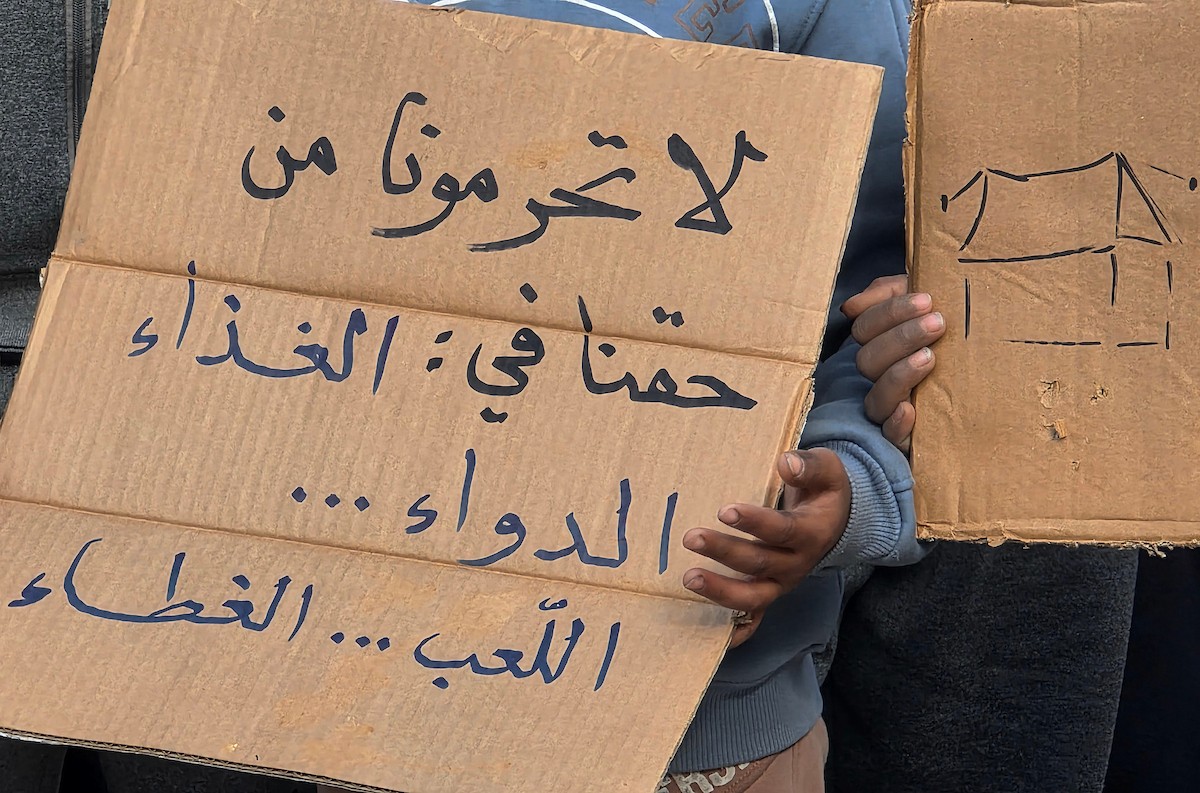 لا تحرمونا من
حقنا في: الغذاء
الدواء ...
اللّعب ... الغطاء